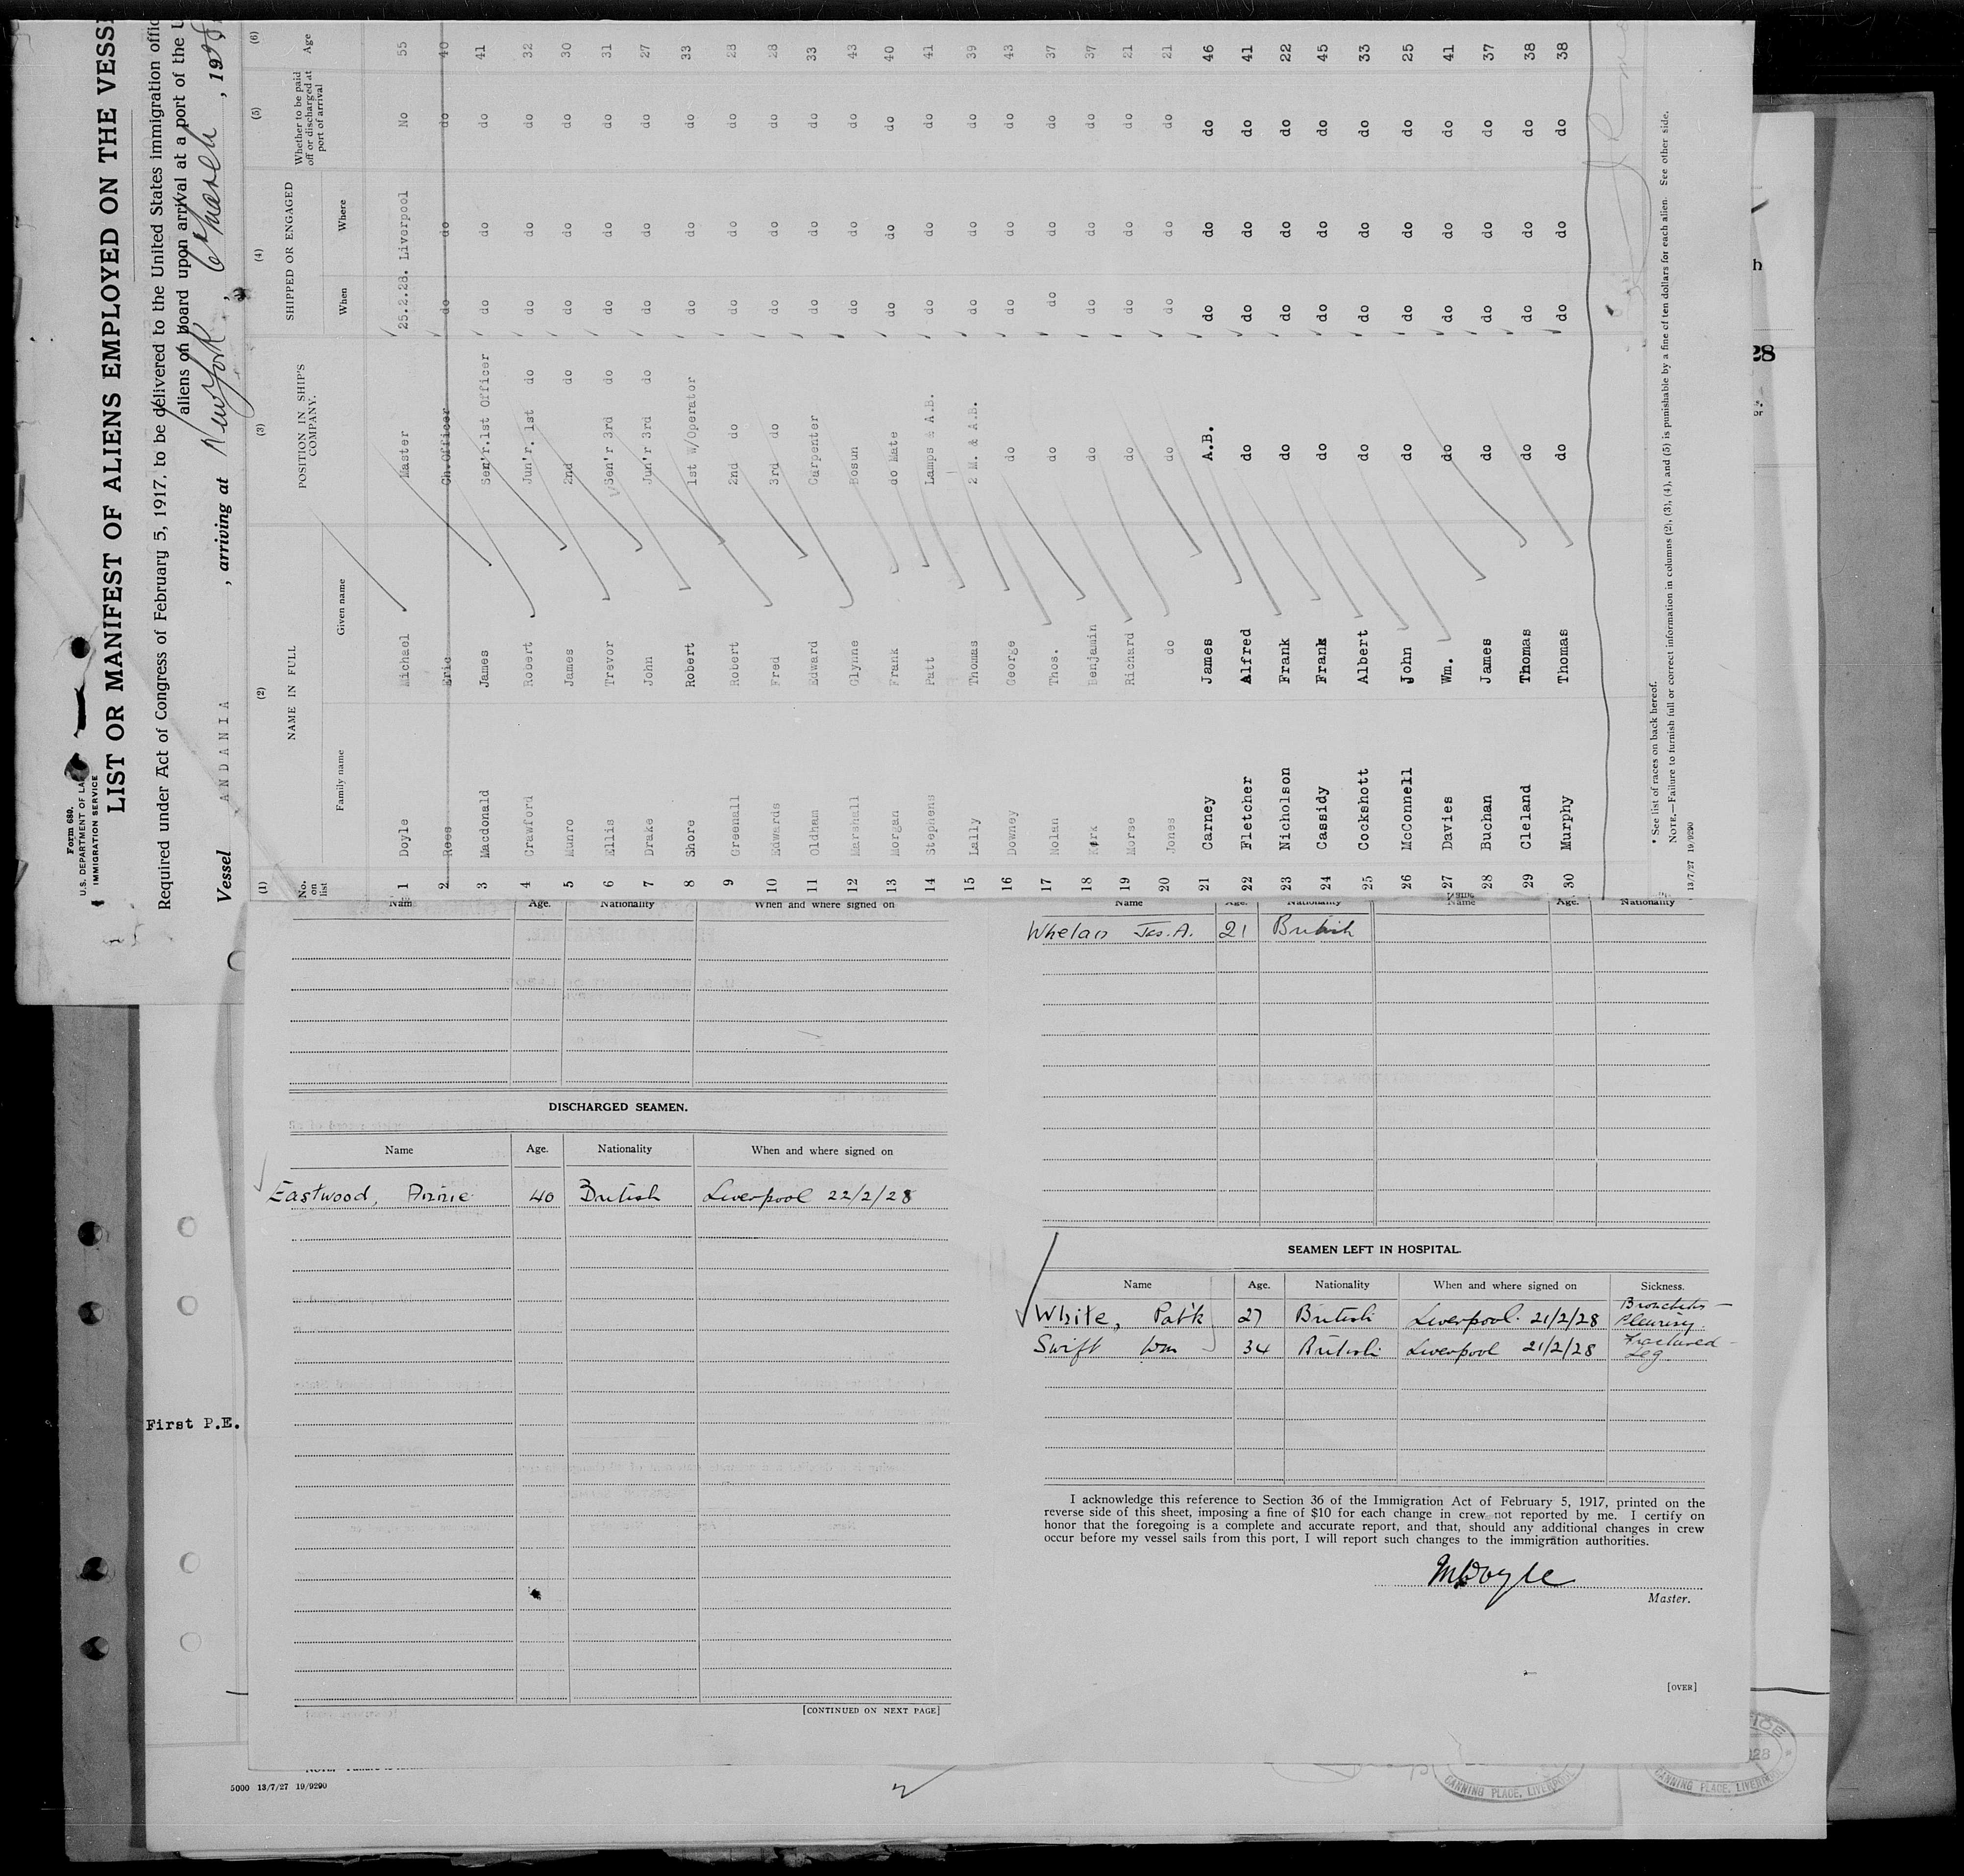 Form 680.
U.S. DEPARTMENT OF LA
IMMIGRATION SERVICE
LIST OR MANIFEST OF ALIENS EMPLOYED ON THE VESS
Required under Act of Congress of February 5, 1917, to be delivered to the United States immigration offic
aliens on board upon arrival at a port of the U
Vessel ANDANIA , arriving at New York , 6th March , 1928
(1) (2) (3) (4) (5) (6)
No. on list NAME IN FULL POSITION IN SHIP'S COMPANY. SHIPPED OR ENGAGED Whether to be paid off or discharged at port of arrival Age
Family name Given name When Where
1 Doyle Michael Master 25.2.28. Liverpool No 55
2 Rees Eric Ch.Officer do do do 40
3 Macdonald James Sen'r.1st Officer do do do 41
4 Crawford Robert Jun'r. 1st do do do do 32
5 Munro James 2nd do do do do 30
6 Ellis Trevor Sen'r 3rd do do do do 31
7 Drake John Jun'r 3rd do do do do 27
8 Shore Robert 1st W/Operator do do do 33
9 Greenall Robert 2nd do do do do 28
10 Edwards Fred 3rd do do do do 28
11 Oldham Edward Carpenter do do do 33
12 Marshall Glynne Bosun do do do 43
13 Morgan Frank do Mate do do do 40
14 Stephens Patt Lamps & A.B. do do do 41
15 Lally Thomas 2 M. & A.B. do do do 39
16 Downey George do do do do 43
17 Nolan Thos. do do do do 37
18 Kirk Benjamin do do do do 37
19 Morse Richard do do do do 21
20 Jones do do do do do 21
21 Carney James A.B. do do do 46
22 Fletcher Alfred do do do do 41
23 Nicholson Frank do do do do 22
24 Cassidy Frank do do do do 45
25 Cockshott Albert do do do do 33
26 McConnell John do do do do 25
27 Davies Wm. do do do do 41
28 Buchan James do do do do 37
29 Cleland Thomas do do do do 38
30 Murphy Thomas do do do do 38
* See list of races on back hereof.
NOTE.—Failure to furnish full or correct information in columns (2), (3), (4), and (5) is punishable by a fine of ten dollars for each alien. See other side.
13/7/27 19/9290
Nam Age. Nationality When and where signed on
DISCHARGED SEAMEN.
Name Age. Nationality When and where signed on
Eastwood, Annie 40 British Liverpool 22/2/28
[CONTINUED ON NEXT PAGE]
Name Age. Nationality Name Age. Nationality
Whelan Jas. A. 21 British
SEAMEN LEFT IN HOSPITAL.
Name Age. Nationality When and where signed on Sickness.
White, Patk 27 British Liverpool. 21/2/28 Bronchitis – Pleurisy.
Swift Wm 34 British Liverpool 21/2/28 Fractured Leg
I acknowledge this reference to Section 36 of the Immigration Act of February 5, 1917, printed on the
reverse side of this sheet, imposing a fine of $10 for each change in crew not reported by me. I certify on
honor that the foregoing is a complete and accurate report, and that, should any additional changes in crew
occur before my vessel sails from this port, I will report such changes to the immigration authorities.
M Doyle
Master.
[OVER]
First P.E.
28
5000 13/7/27 19/9290
CANNING PLACE, LIVERPOOL
CANNING PLACE, LIVERPOOL